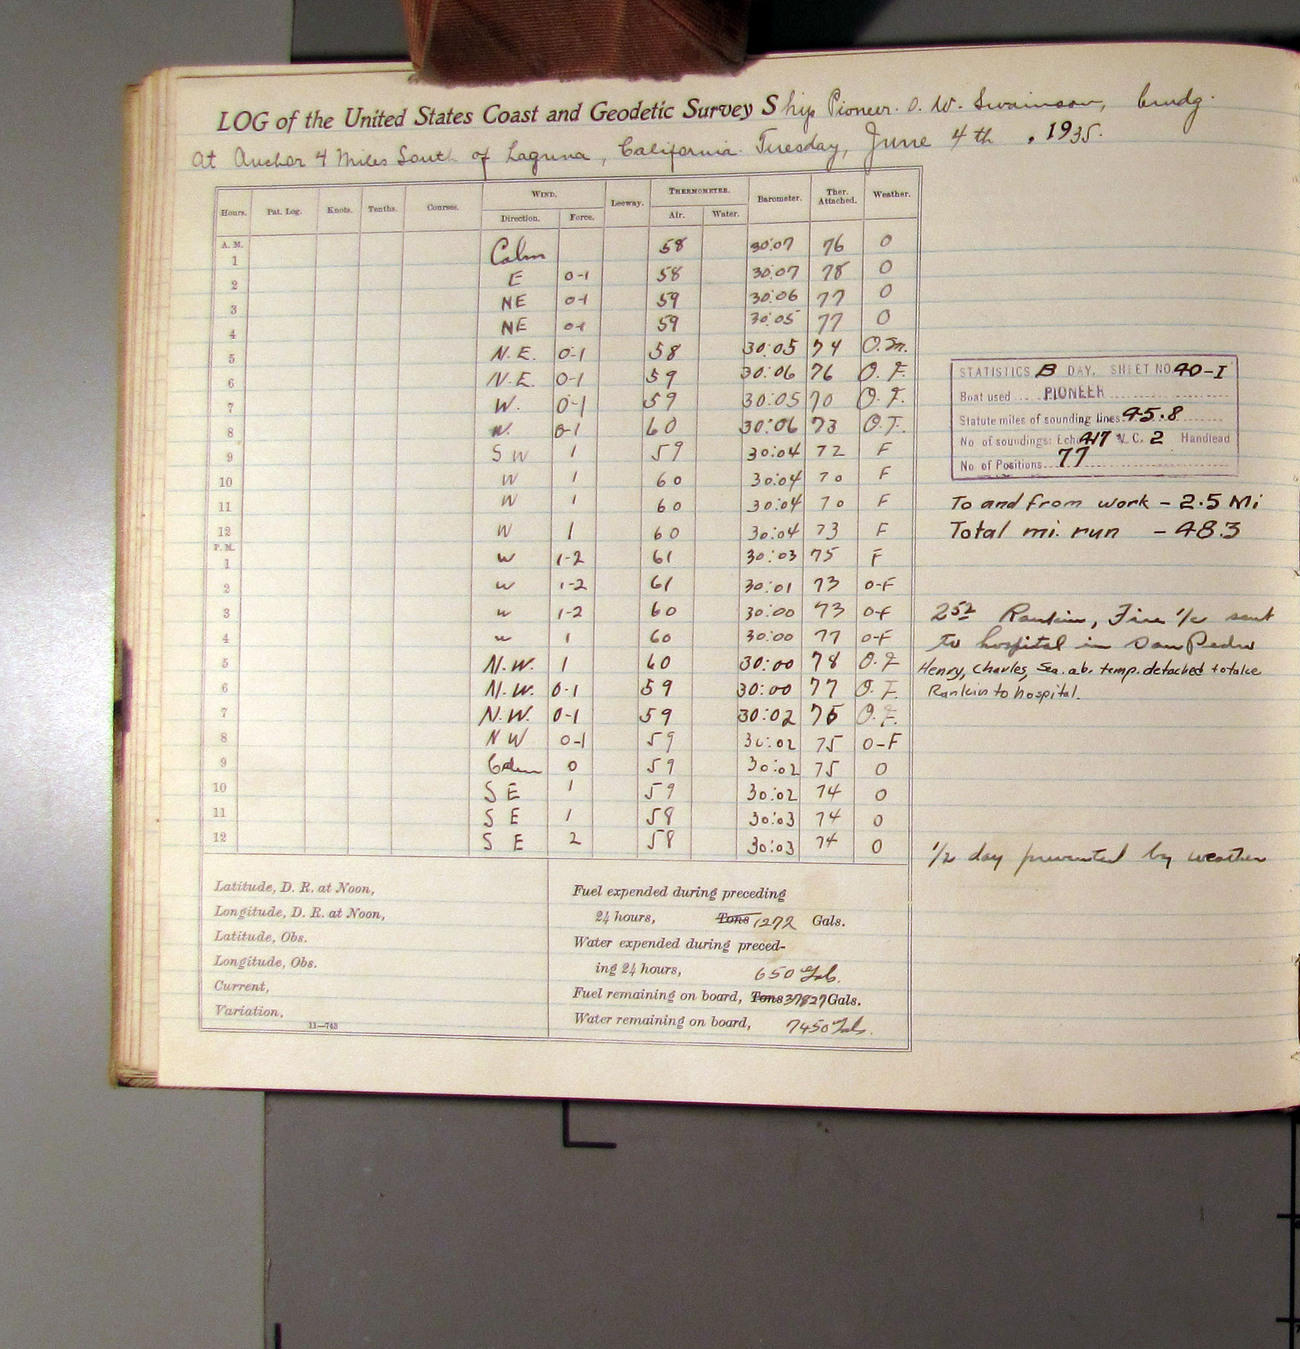 LOG of the United States Coast and Geodetic Survey Ship Pioneer. O. W. Swainson, Cmdg.
At Anchor 4 Miles South of Laguna, California. Tuesday, June 4th, 1935.
Hours. Pat. Log. Knots. Tenths. Courses. WIND. Leeway. THERMOMETER. Barometer. Ther. Attached. Weather.
Direction. Force. Air. Water.
A. M.
1 Calm 58 30:07 76 O
2 E 0-1 58 30:07 78 O
3 NE 0-1 59 30:06 77 O
4 NE 0-1 59 30:05 77 O
5 N.E. 0-1 58 30:05 74 O.M.
6 N.E. 0-1 59 30:06 76 O.F.
7 W. 0-1 59 30:05 70 O.F.
8 W. 0-1 60 30:06 73 O.F.
9 SW 1 59 30:04 72 F
10 W 1 60 30:04 70 F
11 W 1 60 30:04 70 F
12 W 1 60 30:04 73 F
P. M.
1 W 1-2 61 30:03 75 F
2 W 1-2 61 30:01 73 O-F
3 W 1-2 60 30:00 73 O-F
4 W 1 60 30:00 77 O-F
5 N.W. 1 60 30:00 78 O.F
6 N.W. 0-1 59 30:00 77 O.F.
7 N.W. 0-1 59 30:02 76 O.F.
8 NW 0-1 59 30:02 75 O-F
9 Calm 0 59 30:02 75 O
10 SE 1 59 30:02 74 O
11 SE 1 58 30:03 74 O
12 SE 2 58 30:03 74 O
STATISTICS B DAY, SHEET NO 40-I
Boat used PIONEER
Statute miles of sounding lines 45.8
No. of soundings: Echo 417 V.C. 2 Handlead
No. of Positions 77
To and from work - 2.5 Mi
Total mi. run - 48.3
2 52 Rankin, Fire 1/c sent
to hospital in San Pedro
Henry, Charles, Sea. ab. temp. detached to take
Rankin to hospital.
1/2 day prevented by weather
Latitude, D. R. at Noon,
Longitude, D. R. at Noon,
Latitude, Obs.
Longitude, Obs.
Current,
Variation,
11—743
Fuel expended during preceding
24 hours, Tons 1272 Gals.
Water expended during preced-
ing 24 hours, 650 Gals.
Fuel remaining on board, Tons 37827 Gals.
Water remaining on board, 7450 Gals.